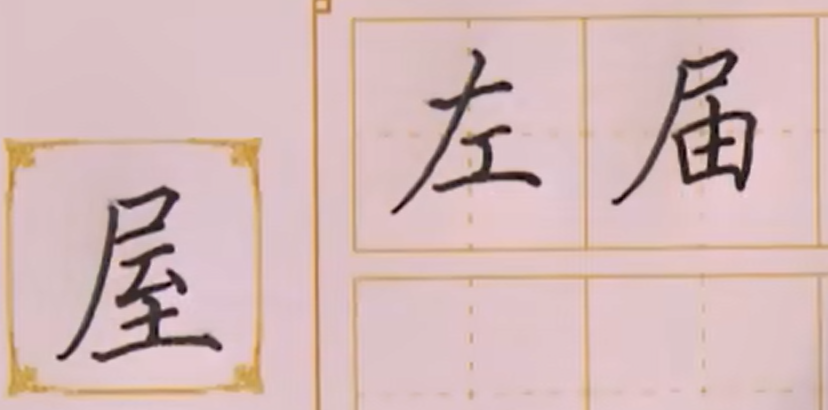 屋
左届